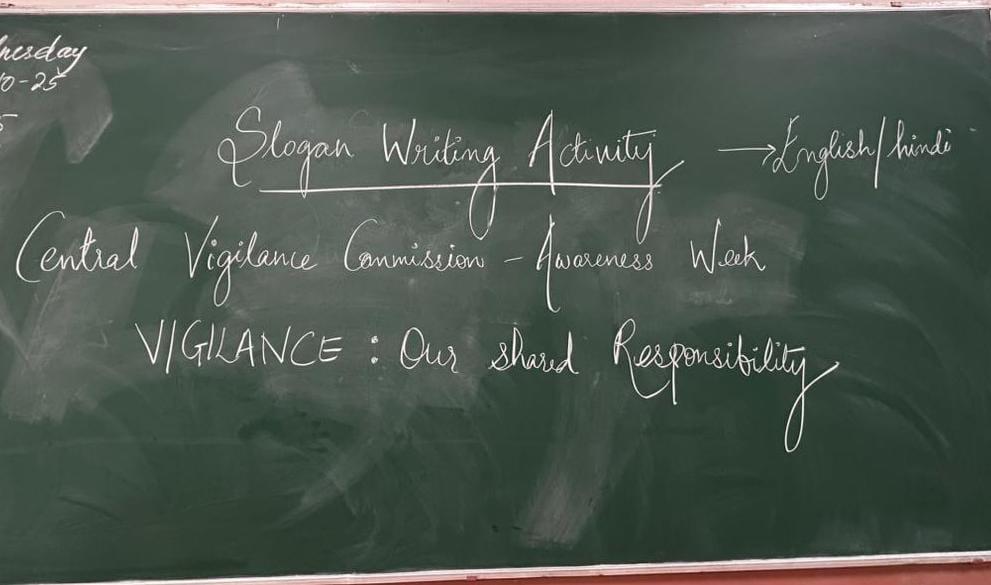 nesday
10-25
5
Slogan Writing Activity → English/hindi
Central Vigilance Commission - Awareness Week
VIGILANCE : Our shared Responsibility